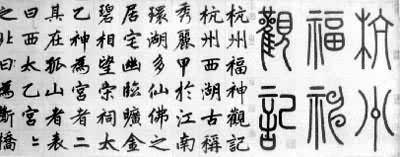 杭州
福神
觀記
杭州福神觀記
杭州西湖古稱
秀麗甲於江南
環湖多仙佛之
居宅幽臨曠金
碧相望崇祠太
乙神為宮者二
其在孤山者表
曰西太乙宮〻
之北曰為斷橋